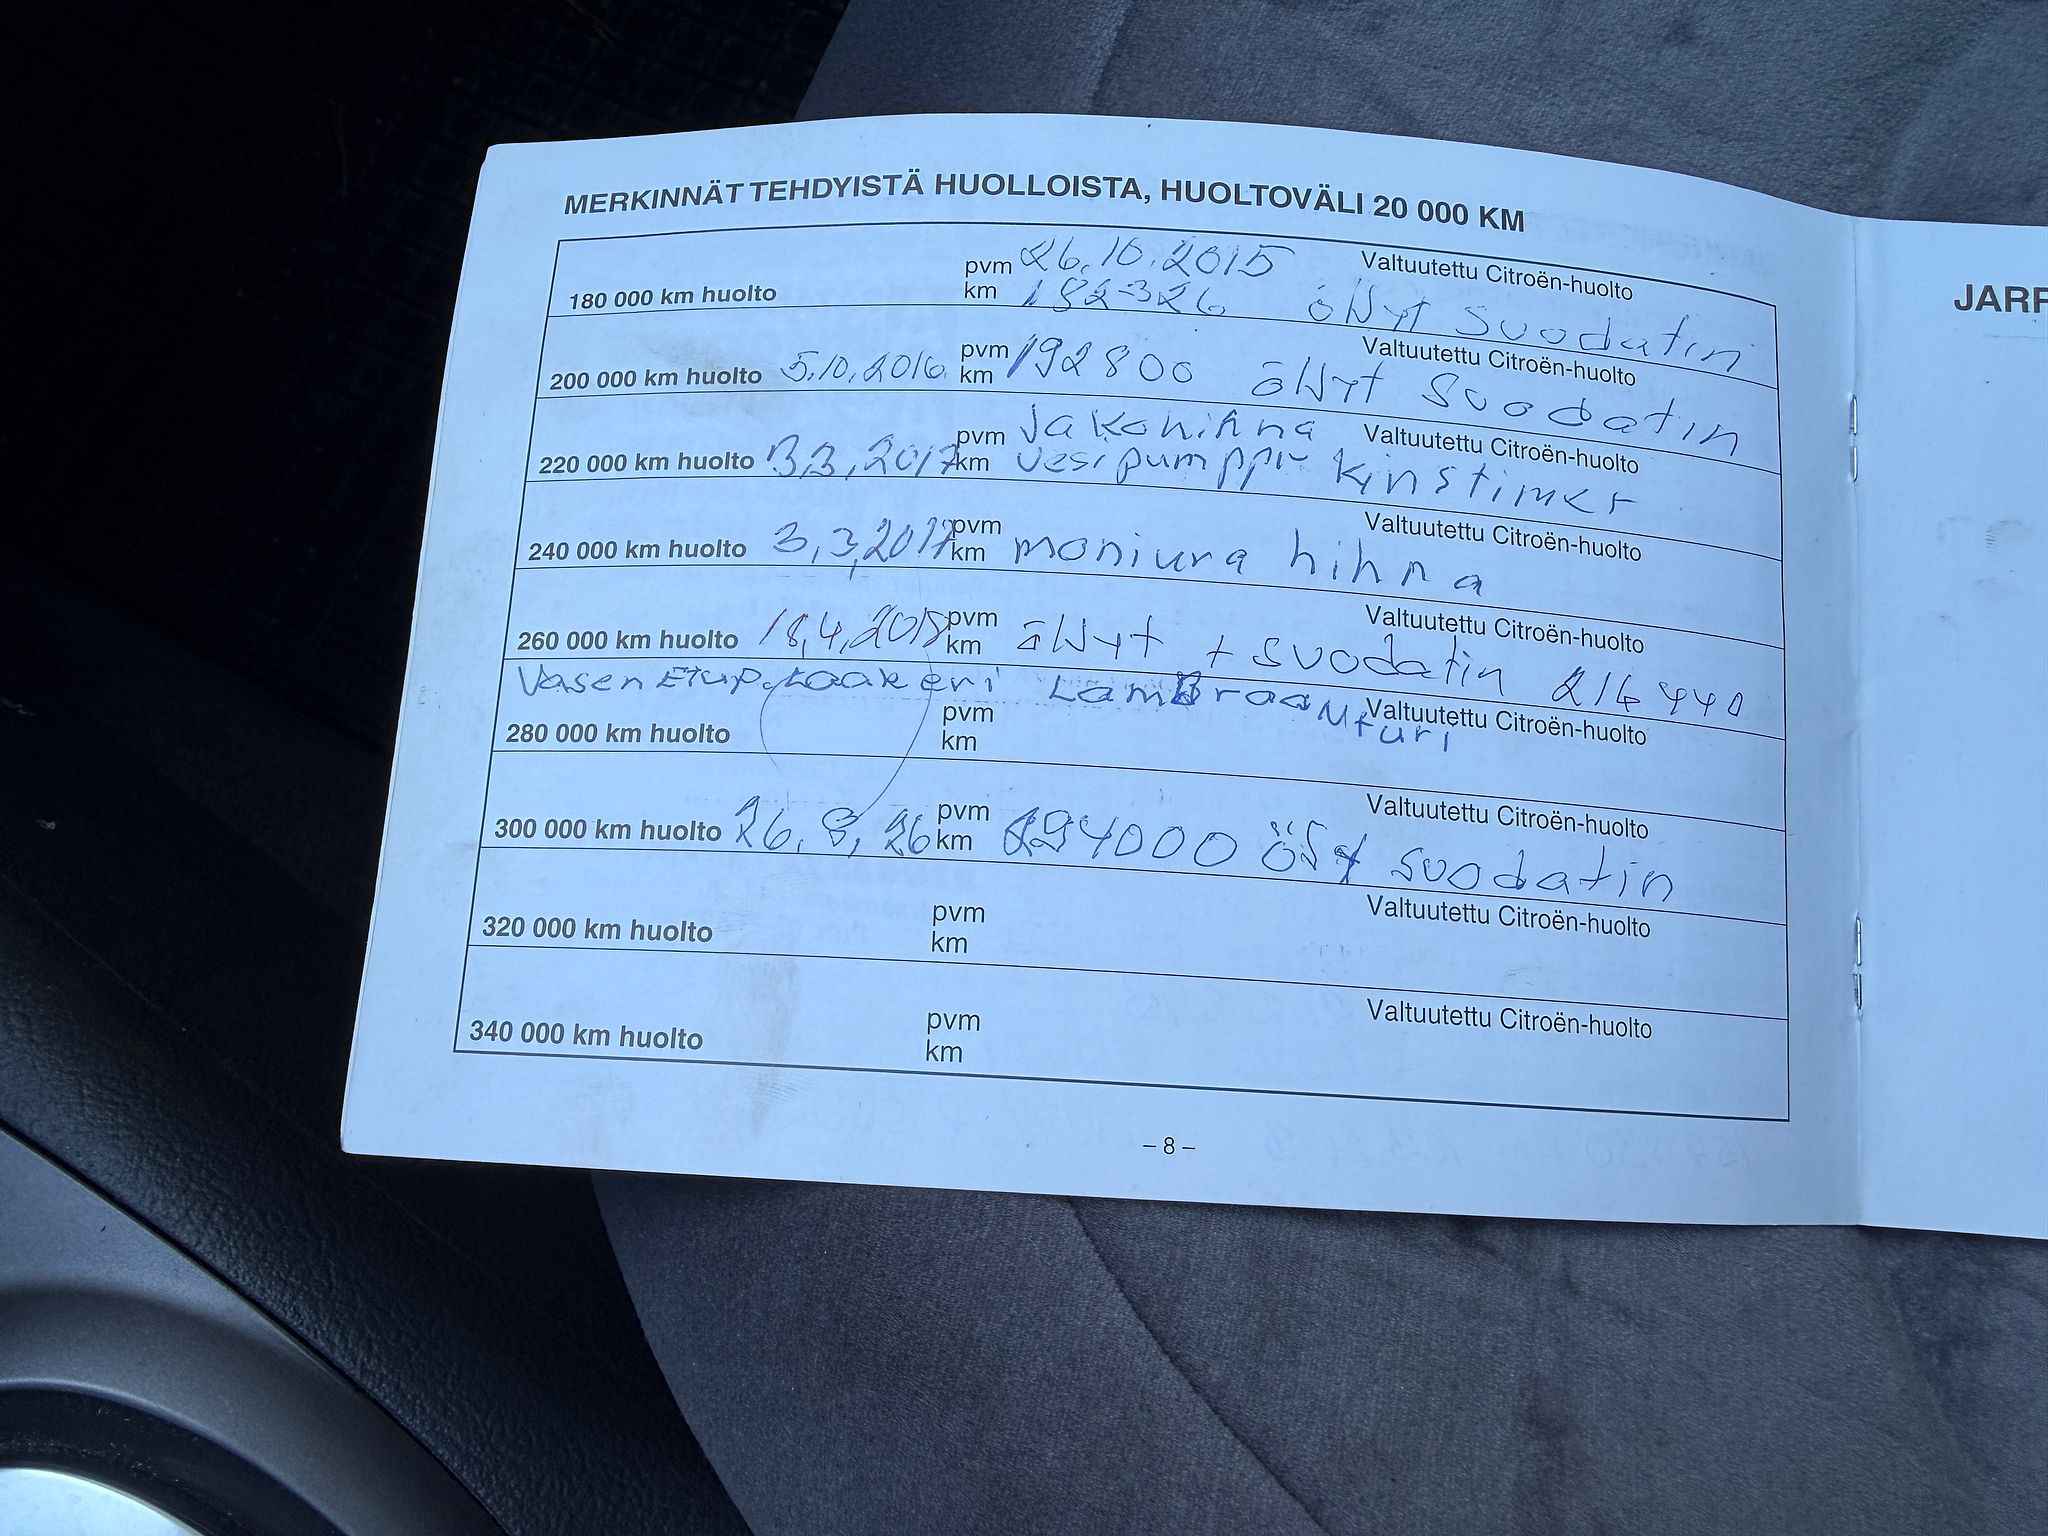 MERKINNÄT TEHDYISTÄ HUOLLOISTA, HUOLTOVÄLI 20 000 KM
pvm 26.10.2015 Valtuutettu Citroën-huolto
180 000 km huolto km 182326 öljyt suodatin
pvm Valtuutettu Citroën-huolto
200 000 km huolto 5.10.2016 km 192800 öljyt suodatin
pvm Jakohihna Valtuutettu Citroën-huolto
220 000 km huolto 3.3.2017 km vesipumppu kiristimet
pvm Valtuutettu Citroën-huolto
240 000 km huolto 3.3.2017 km moniura hihna
pvm Valtuutettu Citroën-huolto
260 000 km huolto 18.4.2018 km öljyt + suodatin 216440
Vasen Etup.
pvm Valtuutettu Citroën-huolto
280 000 km huolto km
pvm Valtuutettu Citroën-huolto
300 000 km huolto 26.8.26 km 294000 suodatin
pvm Valtuutettu Citroën-huolto
320 000 km huolto km
pvm Valtuutettu Citroën-huolto
340 000 km huolto km
– 8 –